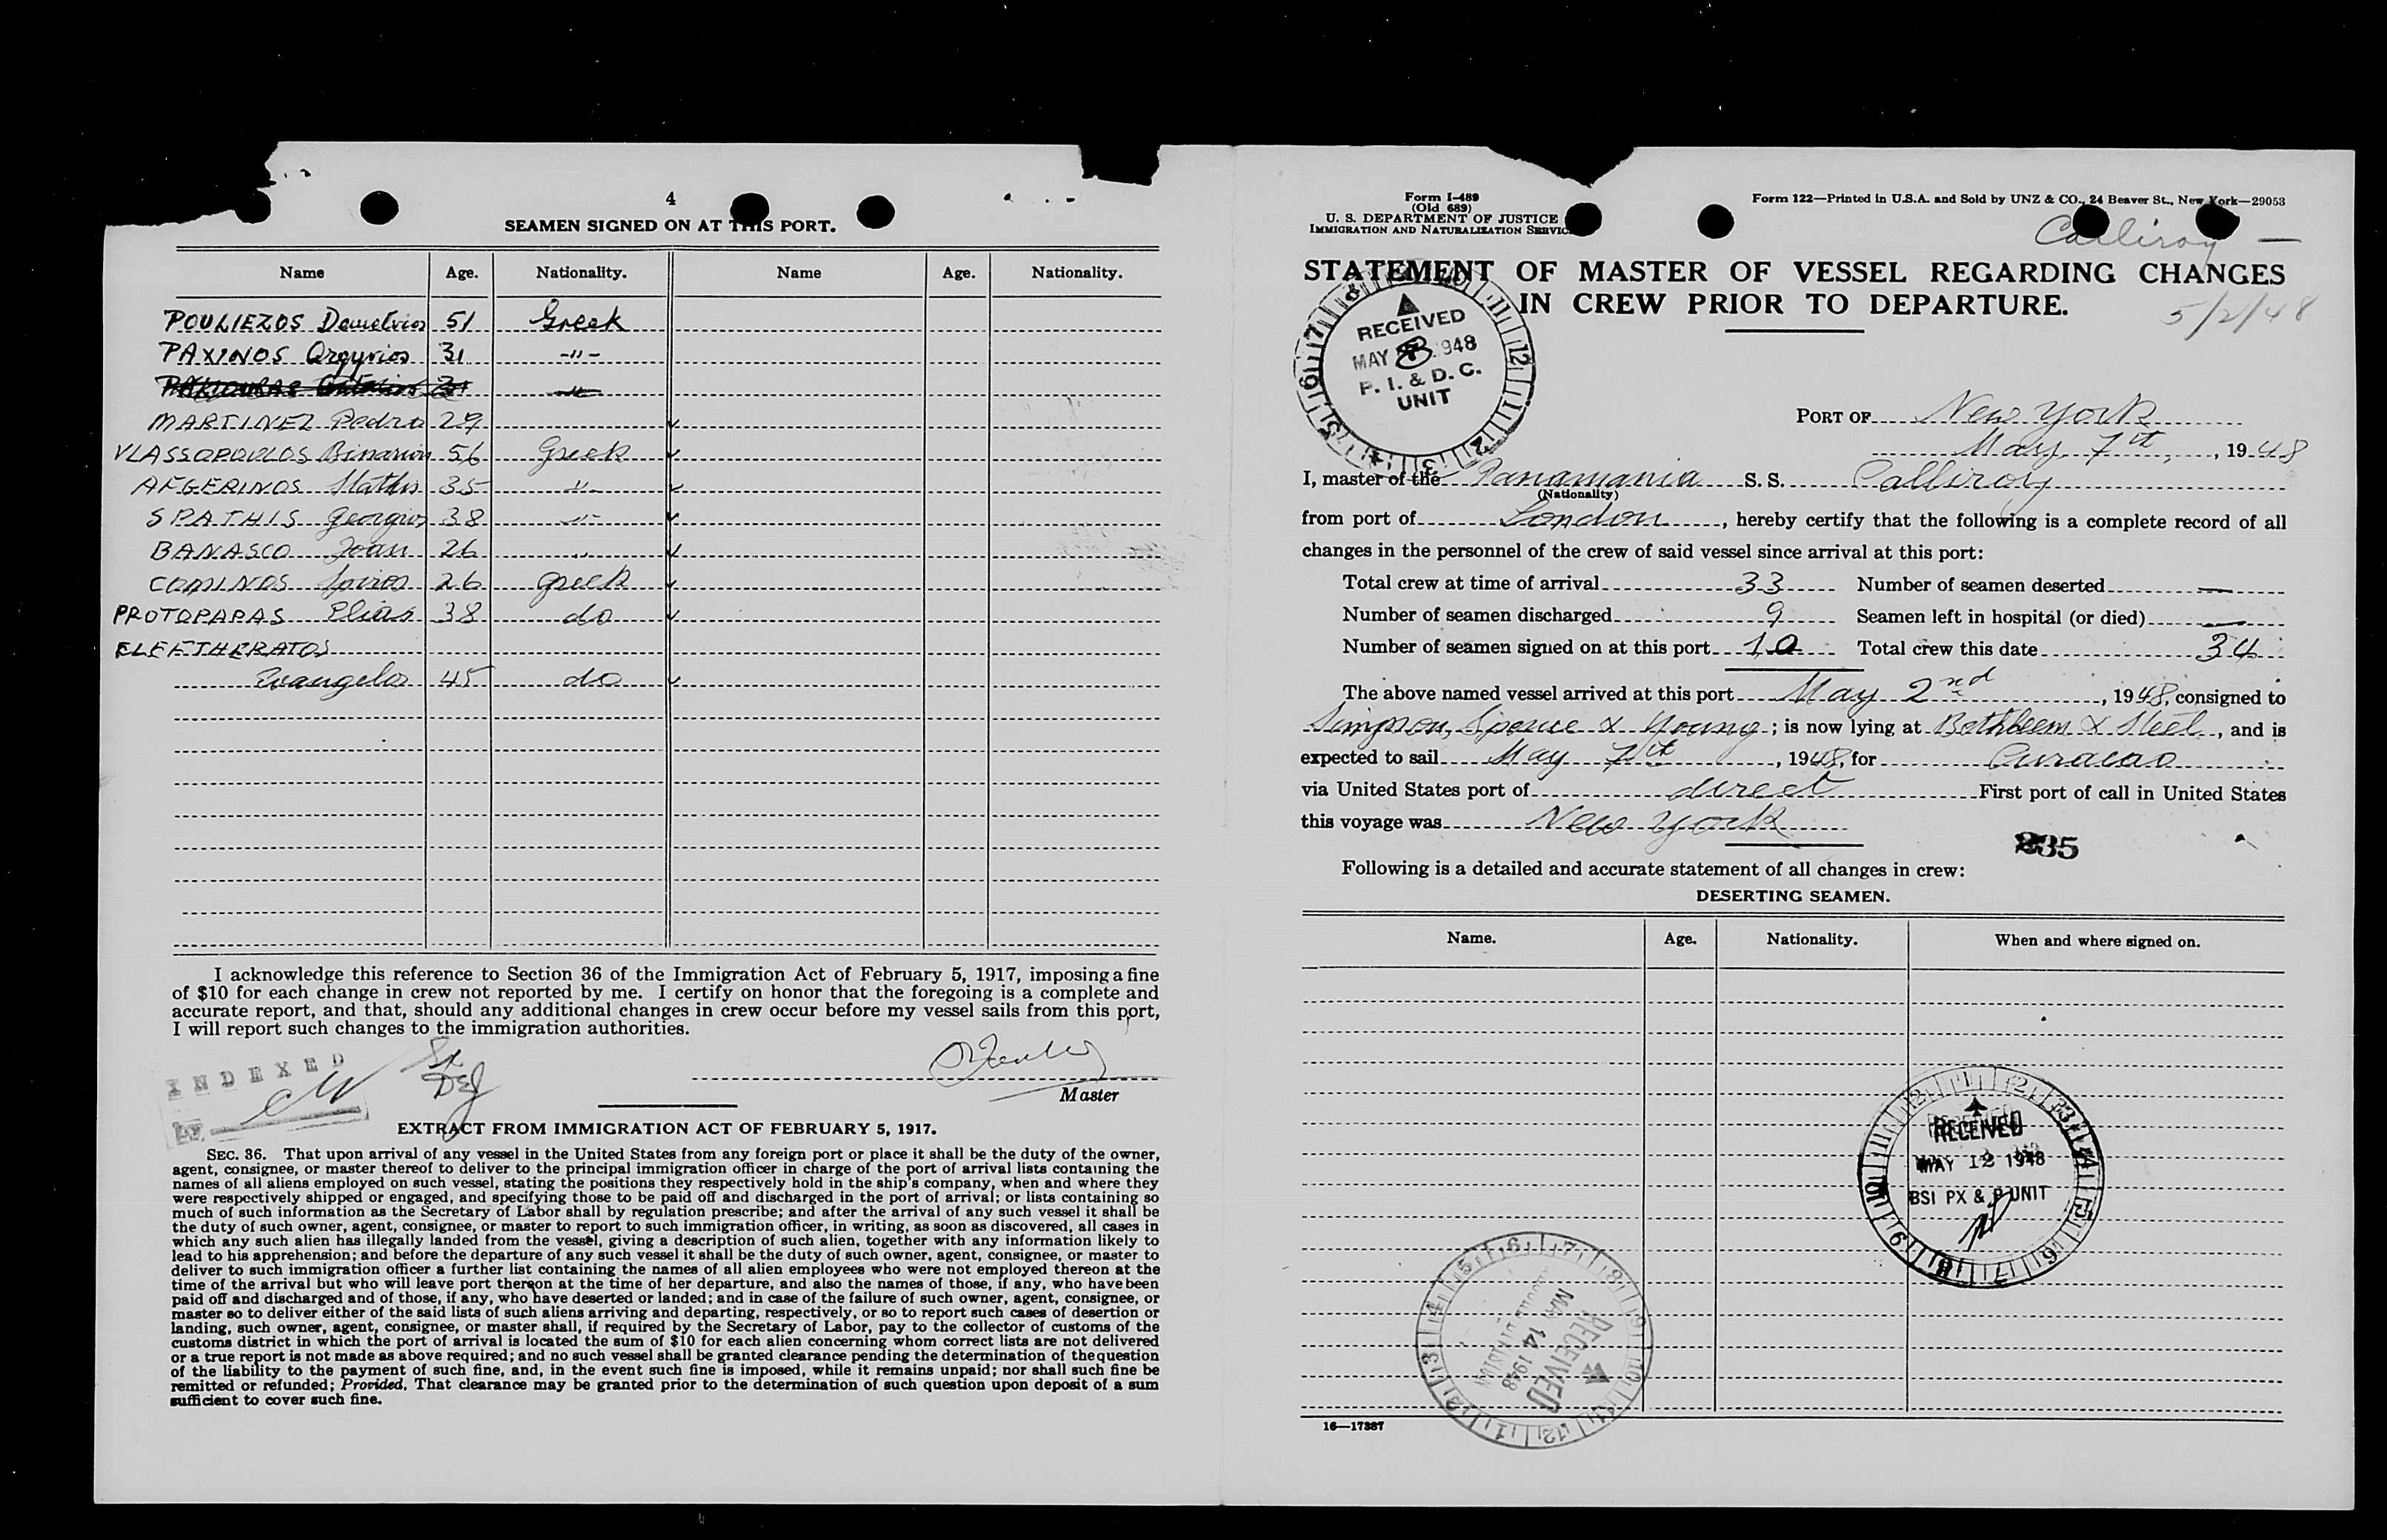 4
SEAMEN SIGNED ON AT THIS PORT.
Name Age. Nationality. Name Age. Nationality.
POULIEZOS Demetrios 51 Greek
PAXINOS Argyrios 31 -"-
MARTINEZ Pedro 29
VLASSOPOULOS 56 Greek
AFGERINOS Stathis 35 -"-
SPATHIS Georgios 38 -"-
BANASCO Joan 26 "
COMINOS Spiros 26 greek
PROTOPAPAS Elias 38 do
ELEFTHERATOS
Evangelos 45 do
I acknowledge this reference to Section 36 of the Immigration Act of February 5, 1917, imposing a fine
of $10 for each change in crew not reported by me. I certify on honor that the foregoing is a complete and
accurate report, and that, should any additional changes in crew occur before my vessel sails from this port,
I will report such changes to the immigration authorities.
INDEXED
Master
EXTRACT FROM IMMIGRATION ACT OF FEBRUARY 5, 1917.
SEC. 36. That upon arrival of any vessel in the United States from any foreign port or place it shall be the duty of the owner,
agent, consignee, or master thereof to deliver to the principal immigration officer in charge of the port of arrival lists containing the
names of all aliens employed on such vessel, stating the positions they respectively hold in the ship's company, when and where they
were respectively shipped or engaged, and specifying those to be paid off and discharged in the port of arrival; or lists containing so
much of such information as the Secretary of Labor shall by regulation prescribe; and after the arrival of any such vessel it shall be
the duty of such owner, agent, consignee, or master to report to such immigration officer, in writing, as soon as discovered, all cases in
which any such alien has illegally landed from the vessel, giving a description of such alien, together with any information likely to
lead to his apprehension; and before the departure of any such vessel it shall be the duty of such owner, agent, consignee, or master to
deliver to such immigration officer a further list containing the names of all alien employees who were not employed thereon at the
time of the arrival but who will leave port thereon at the time of her departure, and also the names of those, if any, who have been
paid off and discharged and of those, if any, who have deserted or landed; and in case of the failure of such owner, agent, consignee, or
master so to deliver either of the said lists of such aliens arriving and departing, respectively, or so to report such cases of desertion or
landing, such owner, agent, consignee, or master shall, if required by the Secretary of Labor, pay to the collector of customs of the
customs district in which the port of arrival is located the sum of $10 for each alien concerning whom correct lists are not delivered
or a true report is not made as above required; and no such vessel shall be granted clearance pending the determination of the question
of the liability to the payment of such fine, and, in the event such fine is imposed, while it remains unpaid; nor shall such fine be
remitted or refunded; Provided, That clearance may be granted prior to the determination of such question upon deposit of a sum
sufficient to cover such fine.
Form I-489
(Old 689)
U. S. DEPARTMENT OF JUSTICE
IMMIGRATION AND NATURALIZATION SERVICE
Form 122—Printed in U.S.A. and Sold by UNZ & CO., 24 Beaver St., New York—29053
Calliroy —
STATEMENT OF MASTER OF VESSEL REGARDING CHANGES
IN CREW PRIOR TO DEPARTURE.
5/2/48
RECEIVED
MAY 8 1948
P. I. & D. C.
UNIT
PORT OF New York
May 7th, 1948
I, master of the Panamania S. S. Calliroy
(Nationality)
from port of London, hereby certify that the following is a complete record of all
changes in the personnel of the crew of said vessel since arrival at this port:
Total crew at time of arrival 33 Number of seamen deserted —
Number of seamen discharged 9 Seamen left in hospital (or died) —
Number of seamen signed on at this port 10 Total crew this date 34
The above named vessel arrived at this port May 2nd, 1948, consigned to
Simpson, Spence & Young; is now lying at Bethleem & Steel, and is
expected to sail May 7th, 1948, for Curacao
via United States port of direct First port of call in United States
this voyage was New York
235
Following is a detailed and accurate statement of all changes in crew:
DESERTING SEAMEN.
Name. Age. Nationality. When and where signed on.
RECEIVED
MAY 12 1948
BSI PX & P UNIT
RECEIVED
MAY 14 1948
16—17387